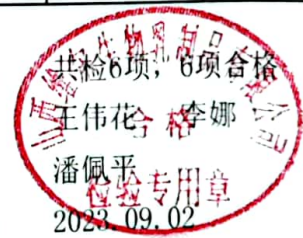 共检6项，6项合格
王伟花 李娜
潘佩平
2023.09.02
合格
检验专用章